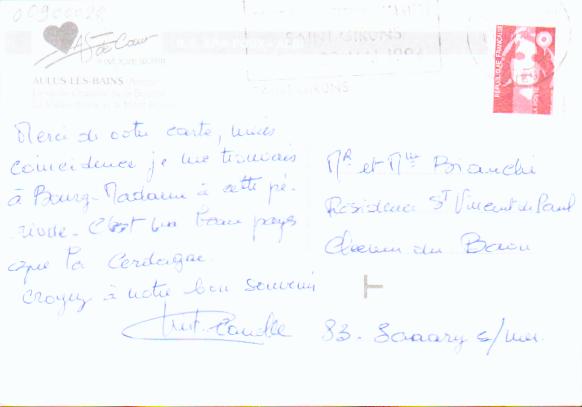 AS de Cœur
AULUS-LES-BAINS
SAINT-GIRONS
SAINT-GIRONS
REPUBLIQUE FRANÇAISE
Merci de votre carte, mais
coincidence je me trouvais
à Bourg-Madame à cette pé-
riode. C'est un beau pays
que la Cerdagne.
Croyez à notre bon souvenir
Mr et Mme Branchi
Résidence St Vincent de Paul
Chemin du Baou
83. Sanary s/mer